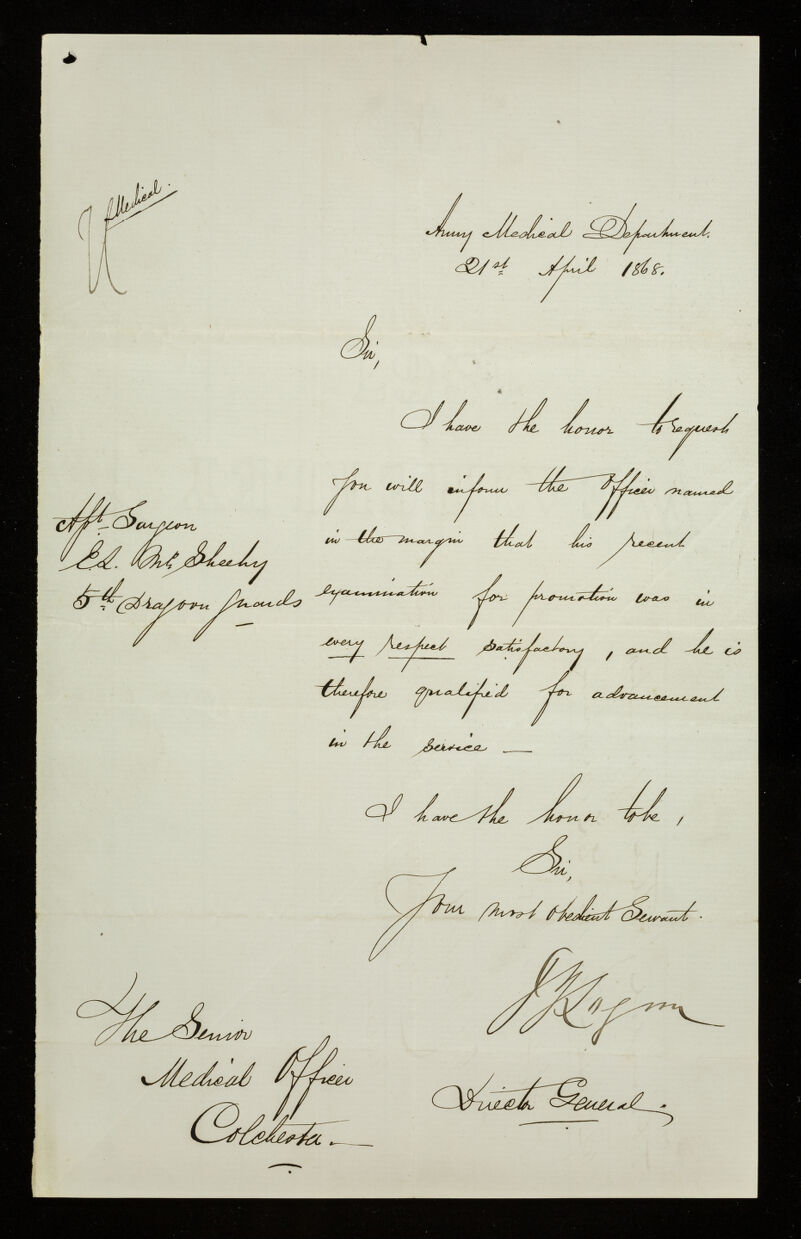 Medical.
Army Medical Department.
21st April 1868.
Sir,
I have the honor to request
you will inform the Officer named
Asst. Surgeon
E.L. McSheehy
5th Dragoon Guards
in the margin that his recent
examination for promotion was in
every respect satisfactory, and he is
therefore qualified for advancement
in the service —
I have the honor to be,
Sir,
Your most obedient Servant.
Logan
Director General.
The Senior
Medical Officer
Colchester. —